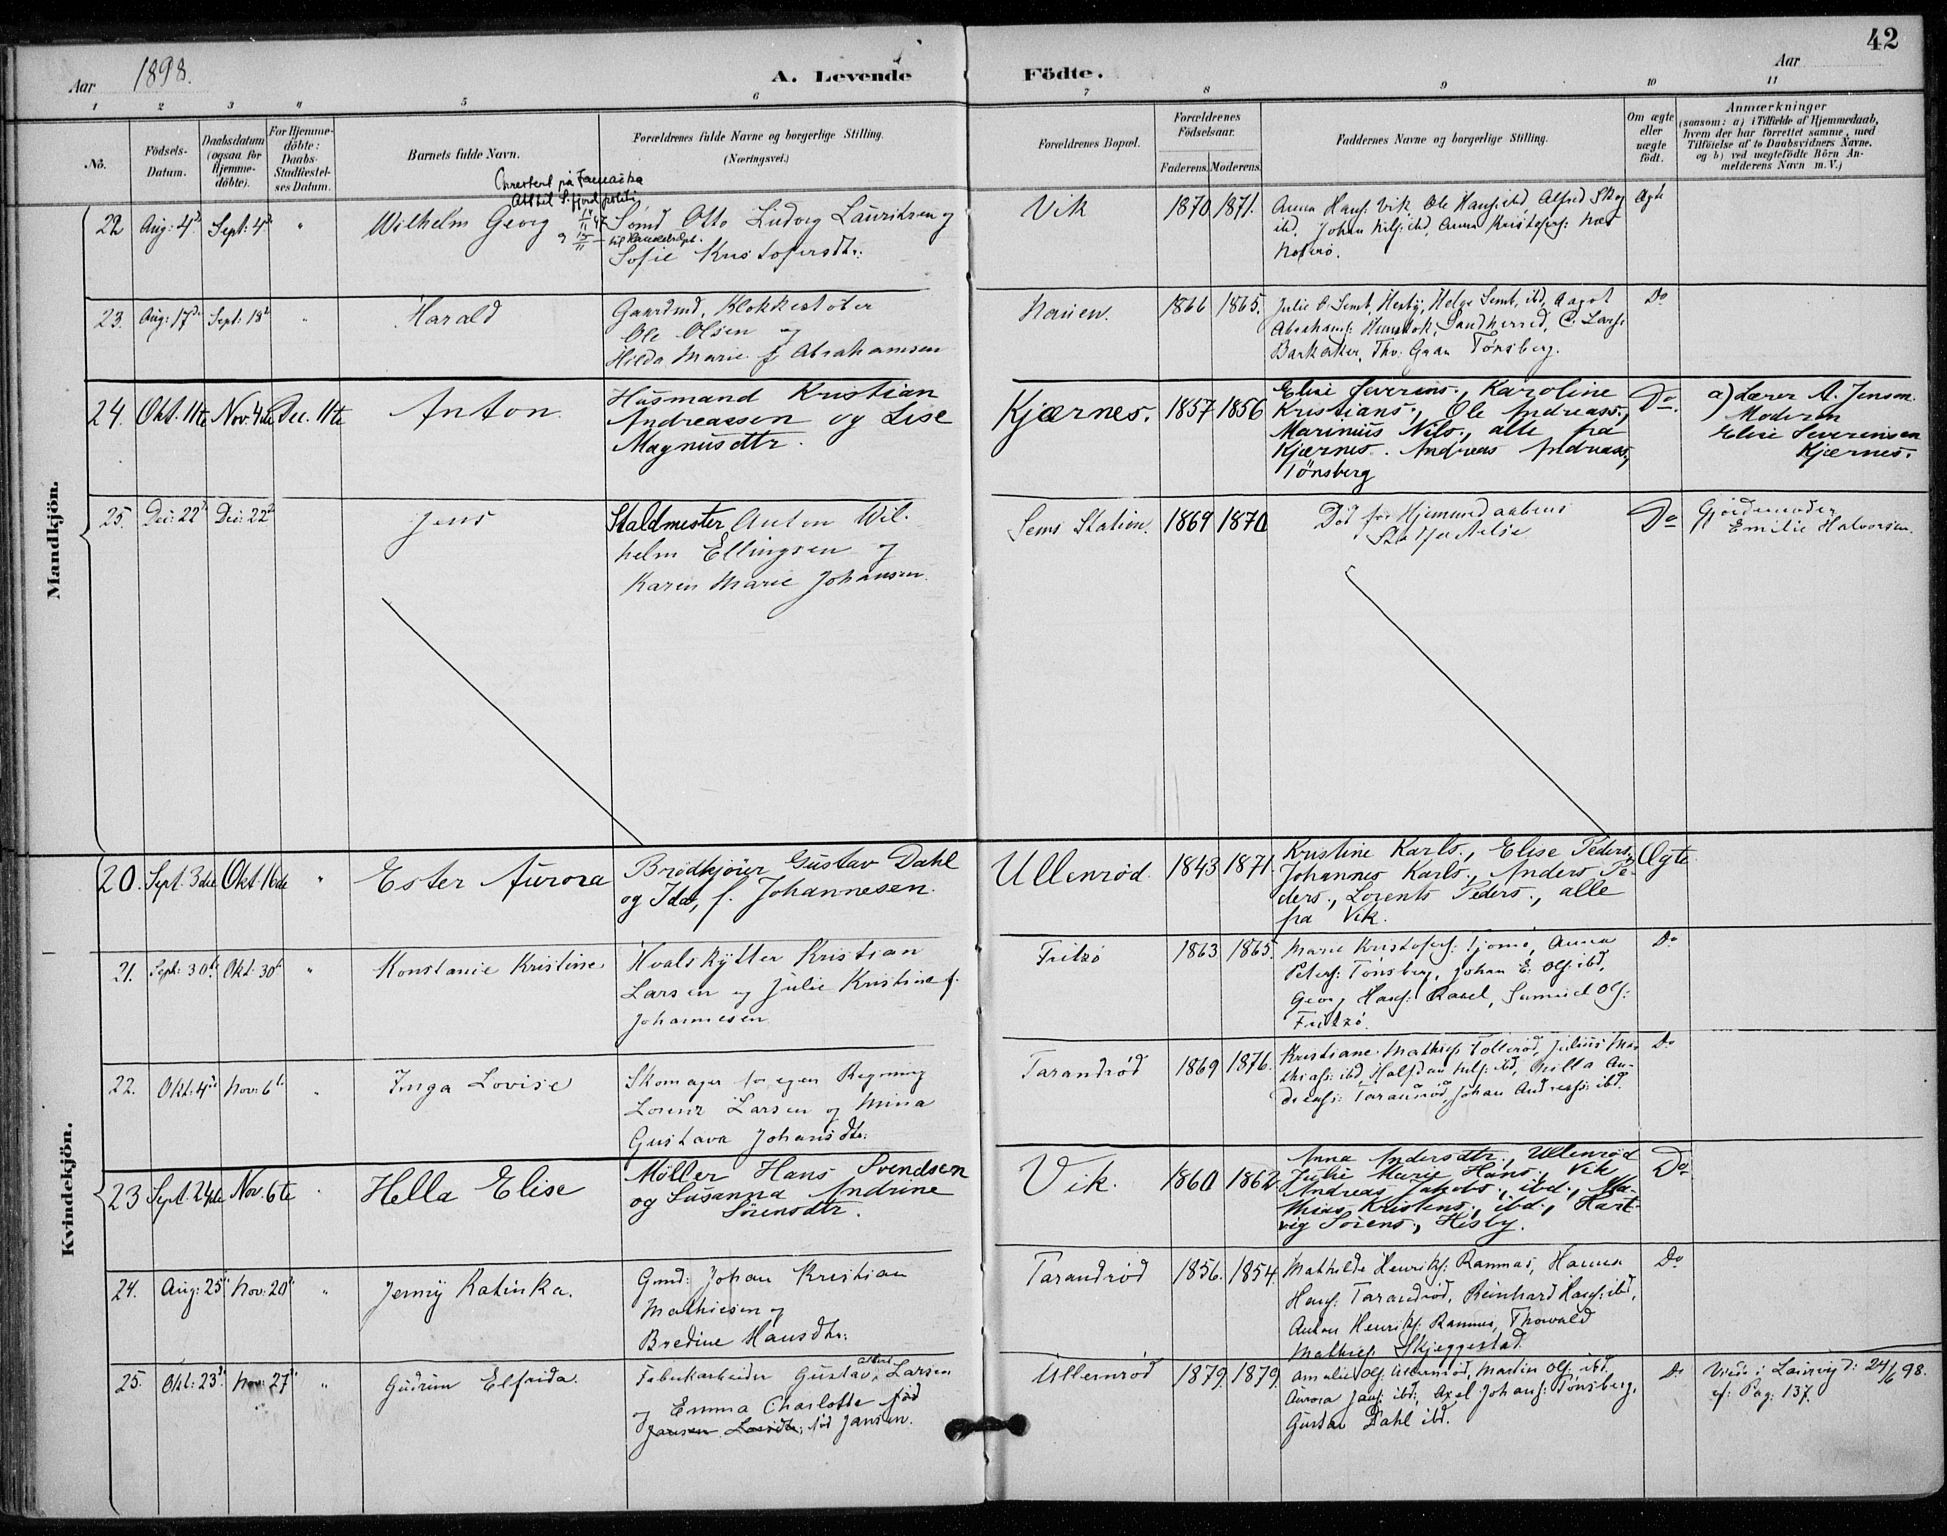 42
Aar 1898.
A. Levende Födte.
Aar
1 2 3 4 5 6 7 8 9 10 11
No.
Födsels-Datum.
Daabsdatum (ogsaa for Hjemme-döbte).
For Hjemme-döbte: Daabs-Stadfæstel-ses Datum.
Barnets fulde Navn.
Forældrenes fulde Navne og borgerlige Stilling. (Næringsvei.)
Forældrenes Bopæl.
Forældrenes Födselsaar.
Faderens. Moderens.
Faddernes Navne og borgerlige Stilling.
Om ægte eller uægte födt.
Anmærkninger
(saasom: a) i Tilfælde af Hjemmedaab,
hvem der har forrettet samme, med
Tilföielse af to Daabsvidners Navne,
og b) ved uægtefödte Börn An-
melderens Navn m. V.)
Mandkjön.
22 Aug: 4d Sept: 4d " Wilhelm Georg
Sömd Otto Ludvig Lauritsen og
Sofie Kristofersdtr:
Vik 1870 1871.
Anna Hans: Vik, Ole Hans: ibd Alfred
ibd. Johan Nils: ibd, Anna Kristofers: Næs
Noterö.
Ægte
23. Aug: 17d Sept: 18d " Harald
Gaardmd. Klokkestöber
Ole Olsen og
Hilda Marie f Abrahamsen
1866 1865.
Julie O. Semb, Hesby, Helge Semb, ibd, Aagot
Abrahams: Sandherred, C. Lars:
Barkaker, Tho: Tønsberg.
Do
24. Okt. 11te Nov. 4de Dec. 11te Anton.
Husmand Kristian
Andreassen og Lise
Magnusdtr.
Kjærnes. 1857 1856
Elise Severins., Karoline
Kristians., Ole Andreass.,
Marinius Nils., alle fra
Kjærnes. Andreas Andreass.,
Tönsberg
Do.
a) Lærer A. Jensen.
Moderen
Elise Severinsen
Kjærnes.
25. Dec: 22d Dec: 22d Jens
Staldmester Anton Wil-
helm Ellingsen og
Karen Marie Johansen.
Sems Station. 1869 1870
Död før Hjemmedaabens
Stadfæstelse
Do
Gjordemoder
Emilie Halvorsen.
Kvindekjön.
20. Sept. 3die Okt. 16de " Ester Aurora
Brödkjörer Gustav Dahl
og Ida, f. Johannesen.
Ullenröd. 1843 1871.
Kristine Karls., Elise Peders.,
Johannes Karls., Anders Pe-
ders., Lorents Peders., alle
fra Vik.
Ægte
21. Sept: 30te Okt: 30te " Konstanse Kristine
Hvalskytter Kristian
Larsen og Julie Kristine f.
Johannesen
Fritzö 1863 1865.
Marie Kristofers: Tjømö, Anna
Peters: Tønsberg, Johan E. Ols: ibd,
Georg Hans: Ravel, Samuel Ols:
Fritzö.
Do
22. Okt: 4de Nov: 6te " Inga Lovise
Skomager for egen Regning
Lorenz Larsen og Mina
Gustava Johansdtr:
Tarandröd 1869 1876.
Kristiane Mathias: Tolleröd, Julius Ma-
thias: ibd, Halfdan Nils: ibd, Milla An-
dreas: Taranröd, Johan Andreas: ibd.
Do
23 Sept. 24de Nov. 6te " Hella Elise
Möller Hans Svendsen
og Susanna Andrine
Sörensdtr.
Vik. 1860 1862
Anna Andersdtr., Ullenröd
Julie Marie Hans., Vik
Andreas Jakobs., ibd., Ma-
thias Kristens., ibd., Hart-
vig Sörens., Hisby.
Do
24. Aug: 25 Nov: 20 " Jenny Katinka.
Gmd: Johan Kristian
Mathiesen og
Bredine Hansdtr:
Tarandröd 1856. 1854.
Mathilde Henriks: Ramnas, Hanna
Hans: Tarandröd, Reinhard Hans: ibd,
Anton Henriks: Ramnas, Thorvald
Mathias: Skjeggestad
Do
25. Okt: 23d Nov: 27 " Gudrun Elfrida.
Fabrikarbeider Gustav Albert Larsen
og Emma Charlotte född
Jansen Larsdtr, född Jansen.
Ullenröd 1879. 1879.
Amalie Ols: Ullenröd, Martin Ols: ibd.
Aurora Jans: ibd, Axel Johans: Tønsberg,
Gustav Dahl ibd.
Do
Viede i Laurvig d: 24/6 98.
cf: Pag: 137.